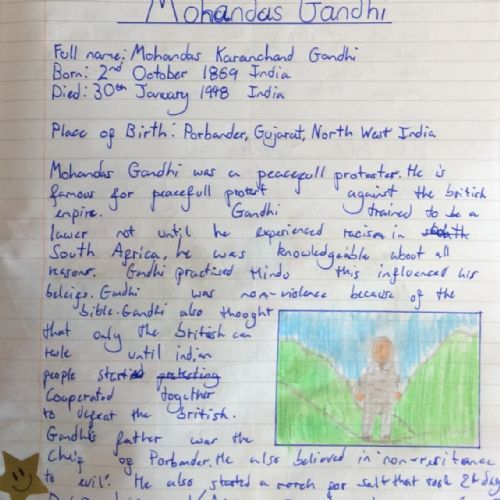 Mohandas Gandhi
Full name: Mohandas Karanchand Gandhi
Born: 2nd October 1869 India
Died: 30th January 1948 India
Place of Birth: Porbander, Gujarat, North West India
Mohandas Gandhi was a peacefull protester. He is
famous for peacefull protest against the british
empire. Gandhi trained to be a
lawer not until he experienced racism in
South Africa, he was knowledgeable about all
reasons. Gandhi practised Hindo this influenced his
beliefs. Gandhi was non-violence because of the
bible. Gandhi also thought
that only the british can
rule until indian
people started protesting
Cooperated together
to defeat the british.
Gandhi's father was the
Chief of Porbander. He also believed in non-resistance
to evil. He also started a march for salt that took 24 day